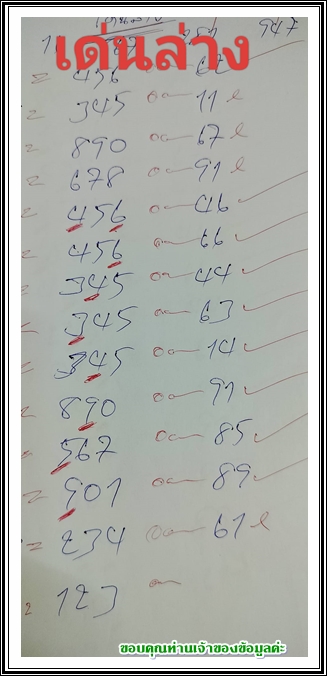 เด่นล่าง
947
456 62
345 11
890 67
678 91
456 46
456 66
345 44
345 63
345 14
890 91
567 85
901 89
234 61
123
ขอบคุณท่านเจ้าของข้อมูลค่ะ